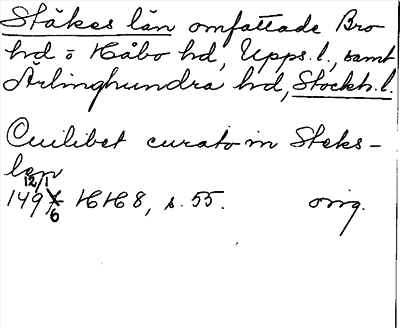 Stäkes län omfattade Bro
hd o Håbo hd, Upps. l., samt
Ärlinghundra hd, Stockh. l.
Cuilibet curato in Steks-
len
12/1
1496 HH 8, s. 55. orig.